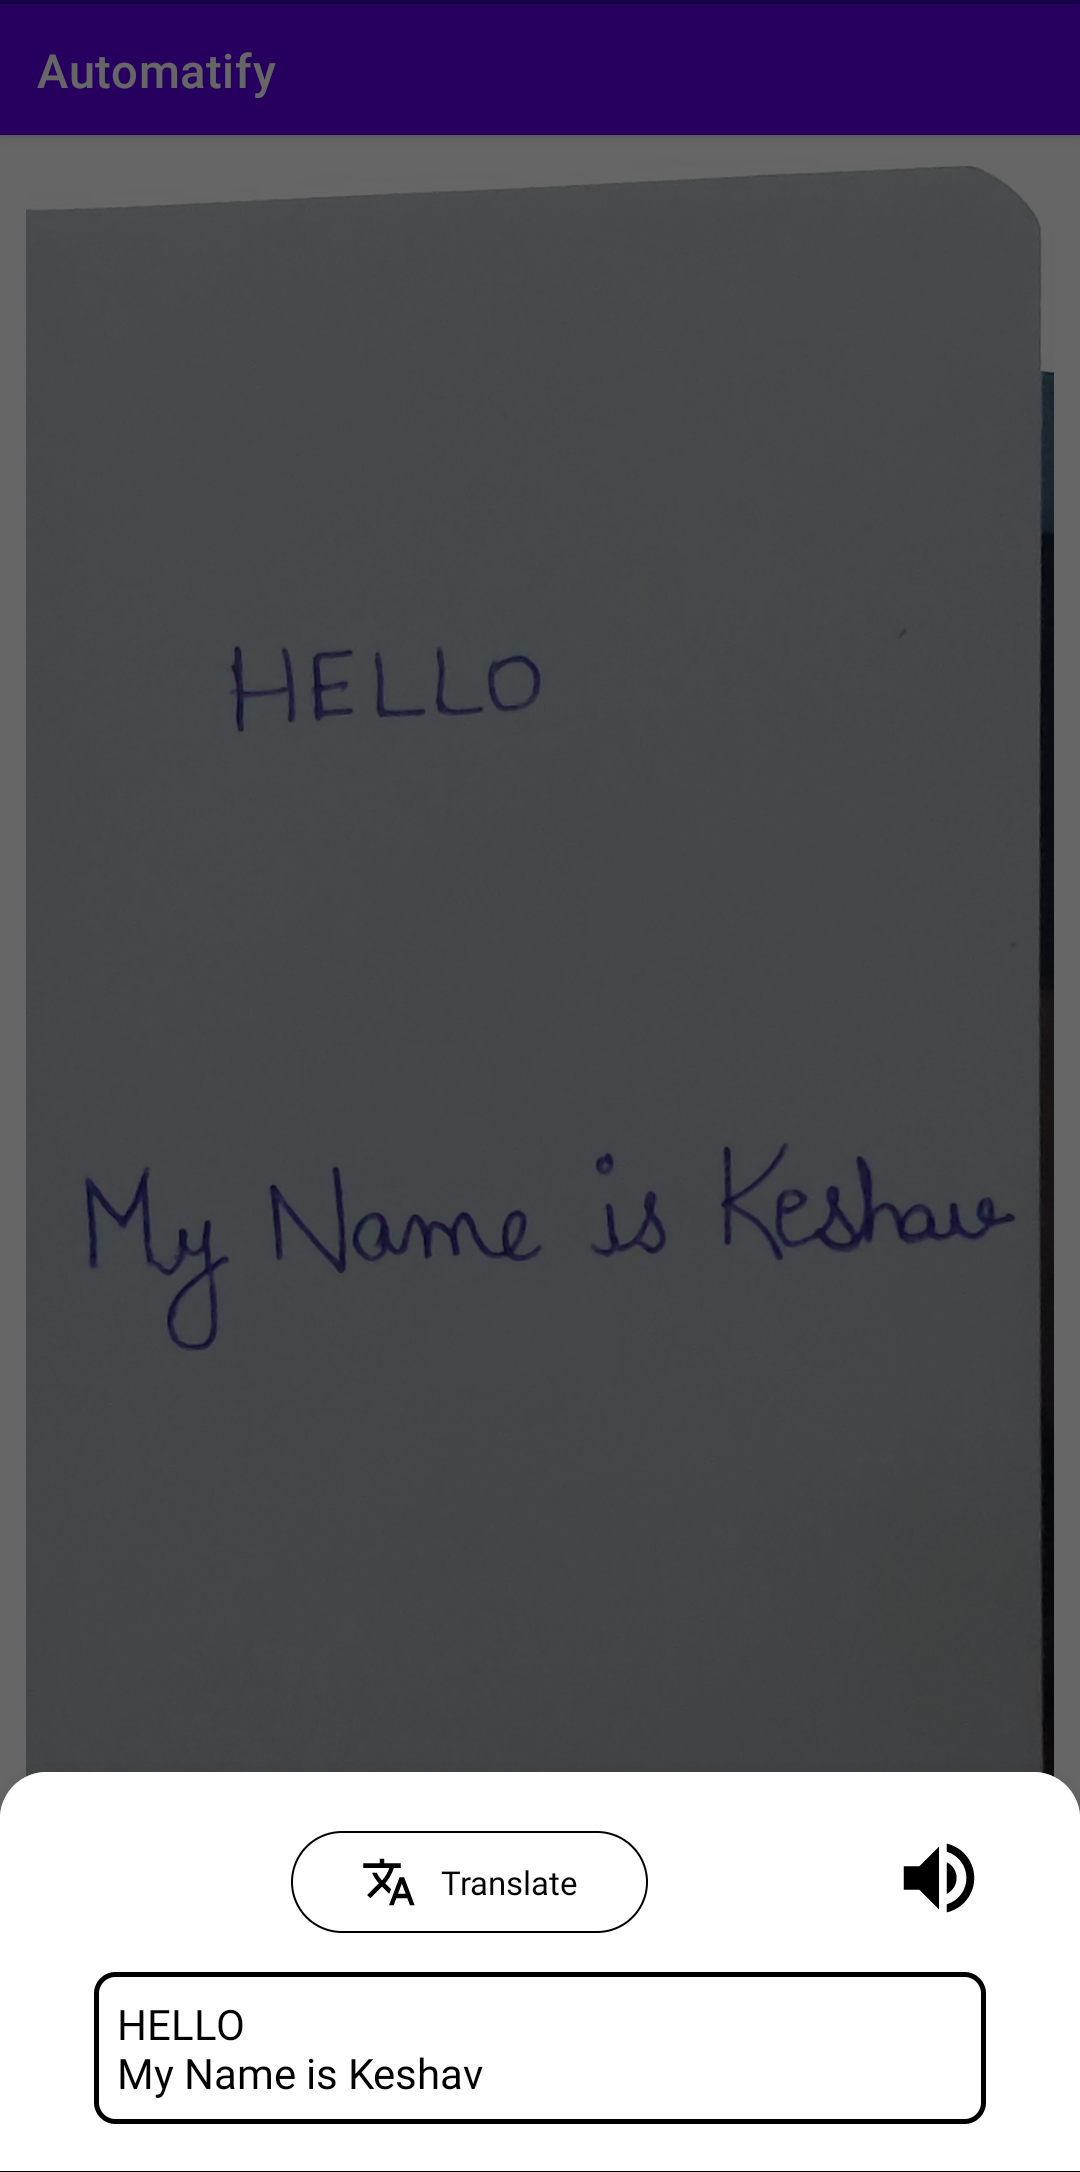 Automatify
HELLO
My Name is Keshav
Translate
HELLO
My Name is Keshav